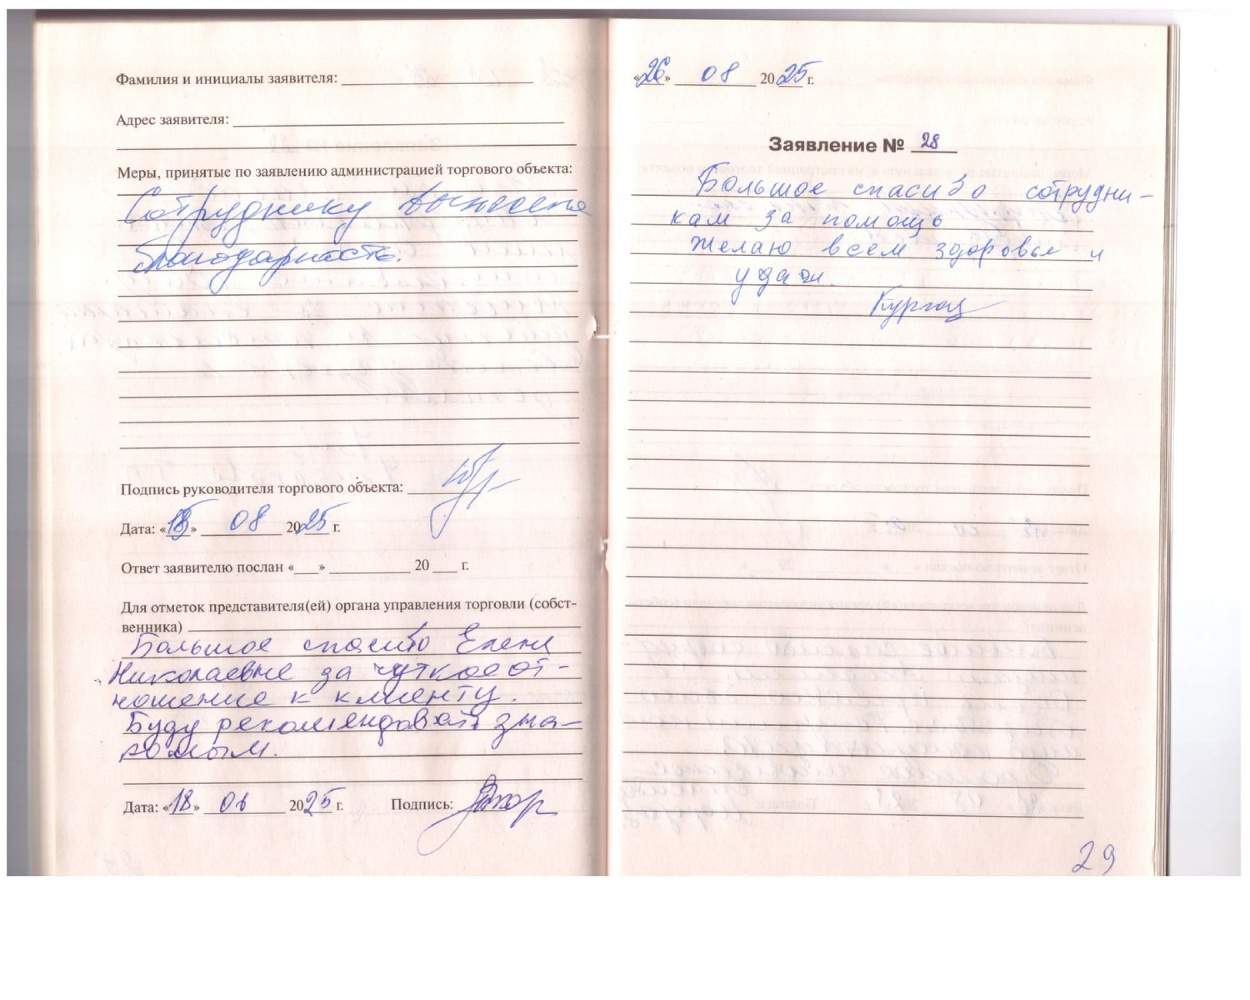 Фамилия и инициалы заявителя:
Адрес заявителя:
Меры, принятые по заявлению администрацией торгового объекта:
Сотруднику вынесена
благодарность.
Подпись руководителя торгового объекта:
Дата: «18» 08 2025 г.
Ответ заявителю послан «___» 20 ___ г.
Для отметок представителя(ей) органа управления торговли (собст-
венника)
Большое спасибо Елене
Николаевне за чуткое от-
ношение к клиенту.
Буду рекомендовать зна-
комым.
Дата: «18» 08 2025 г. Подпись:
«26» 08 2025 г.
Заявление № 28
Большое спасибо сотрудни-
кам за помощь
Желаю всем здоровья и
удачи.
29